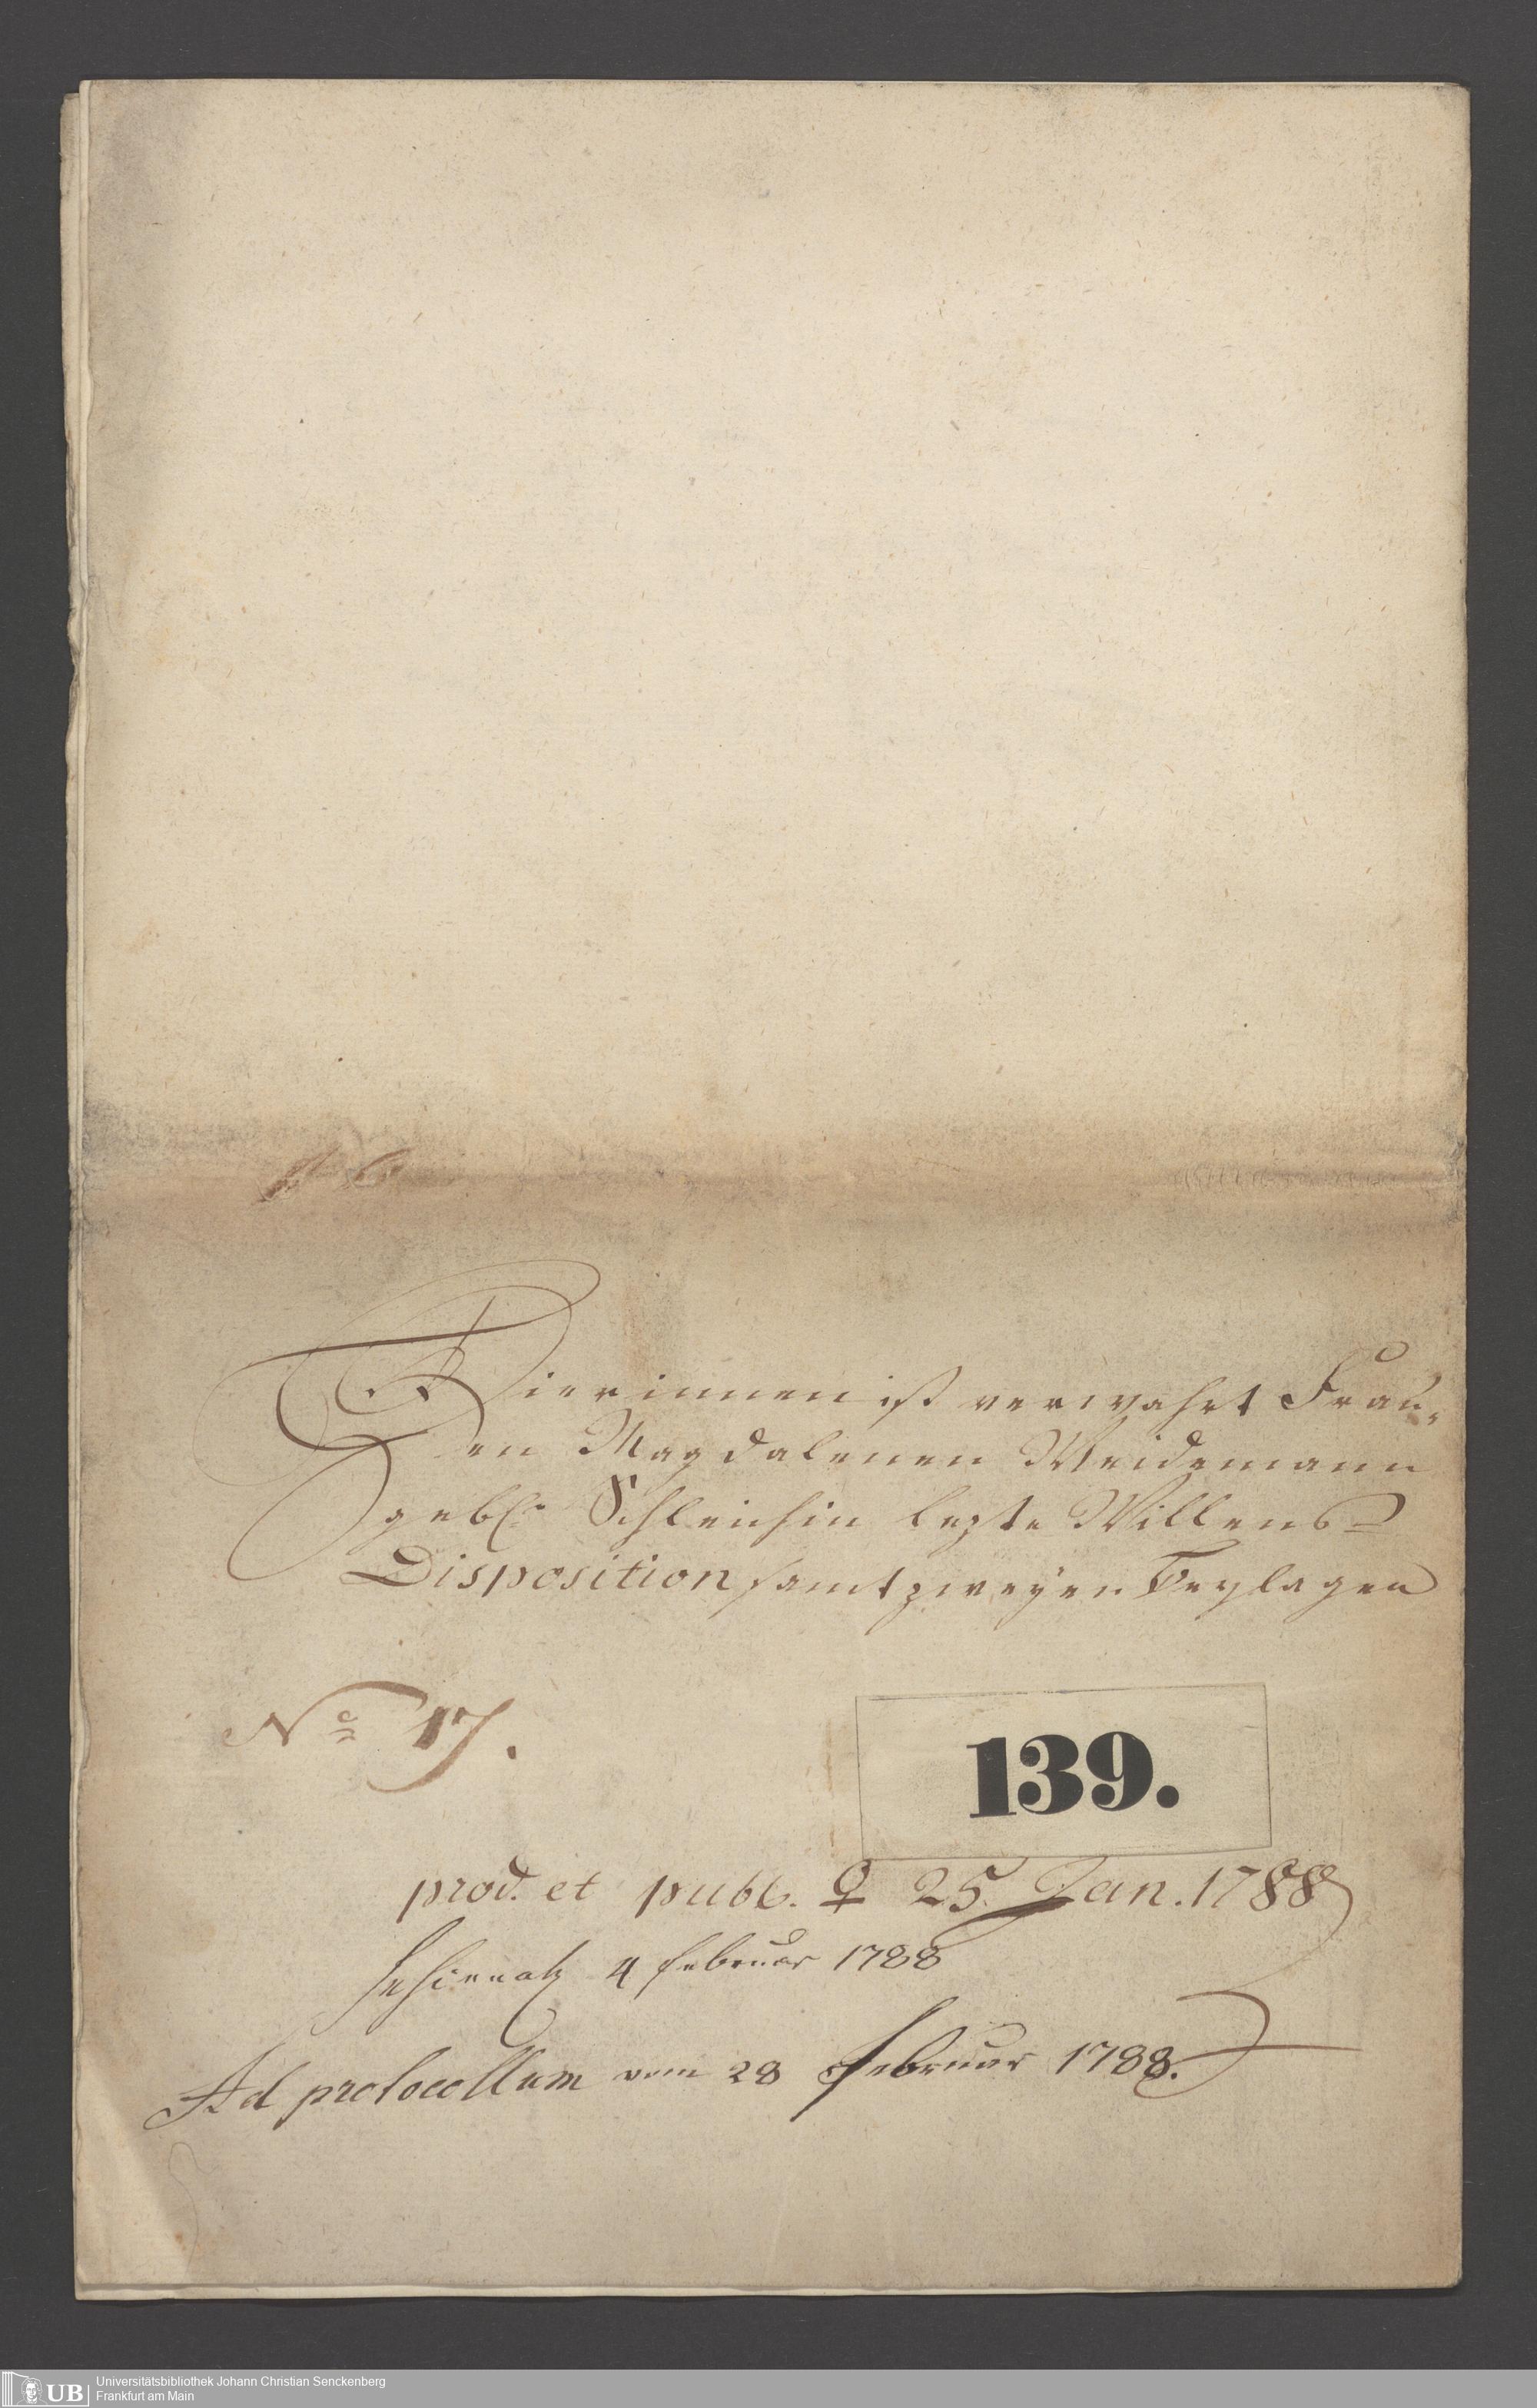 Hierinnen ist verwahrt Frau-
en Magdalenen Weidemann
gebl. Schleichin lezte Willens-
Disposition samt zweyen Beylagen
No 17.
139.
prod. et publ. ♀ 25. Jan. 1788
4 Februar 1788
Ad protocollum vom 28 Februar 1788.
UB
Universitätsbibliothek Johann Christian Senckenberg
Frankfurt am Main